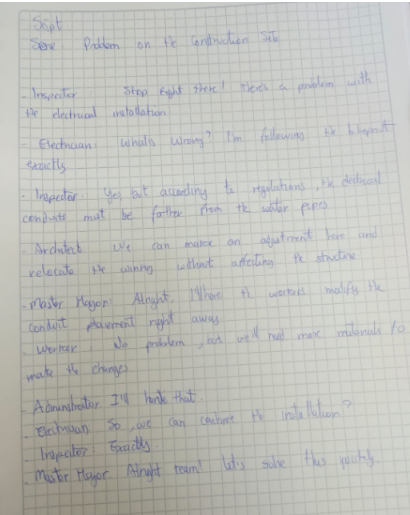 Script
Scene Problem on the Construction Site
- Inspector Stop right there! There's a problem with
the electrical installation
- Electrician: What's wrong? I'm following the blueprint
exactly
- Inspector: Yes, but according to regulations, the electrical
conduits must be farther from the water pipes
- Architect We can make an adjustment here and
relocate the wiring without affecting the structure
- Master Mayor: Alright. I'll have the workers modify the
conduit placement right away
Worker: No problem, but we'll need more materials to
make the changes
- Administrator I'll handle that.
- Electrician So, we can continue the installation?
- Inspector: Exactly
- Master Mayor Alright team! Let's solve this quickly.